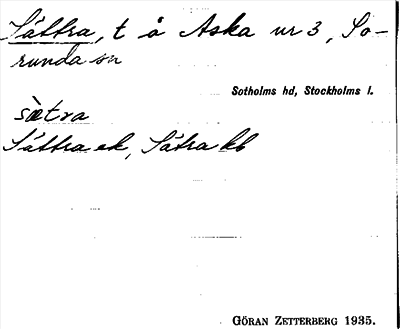 Sättra, t å Aska nr 3, So-
runda sn
Sotholms hd, Stockholms l.
sætra
Sättra ek, Sätra kb
GÖRAN ZETTERBERG 1935.